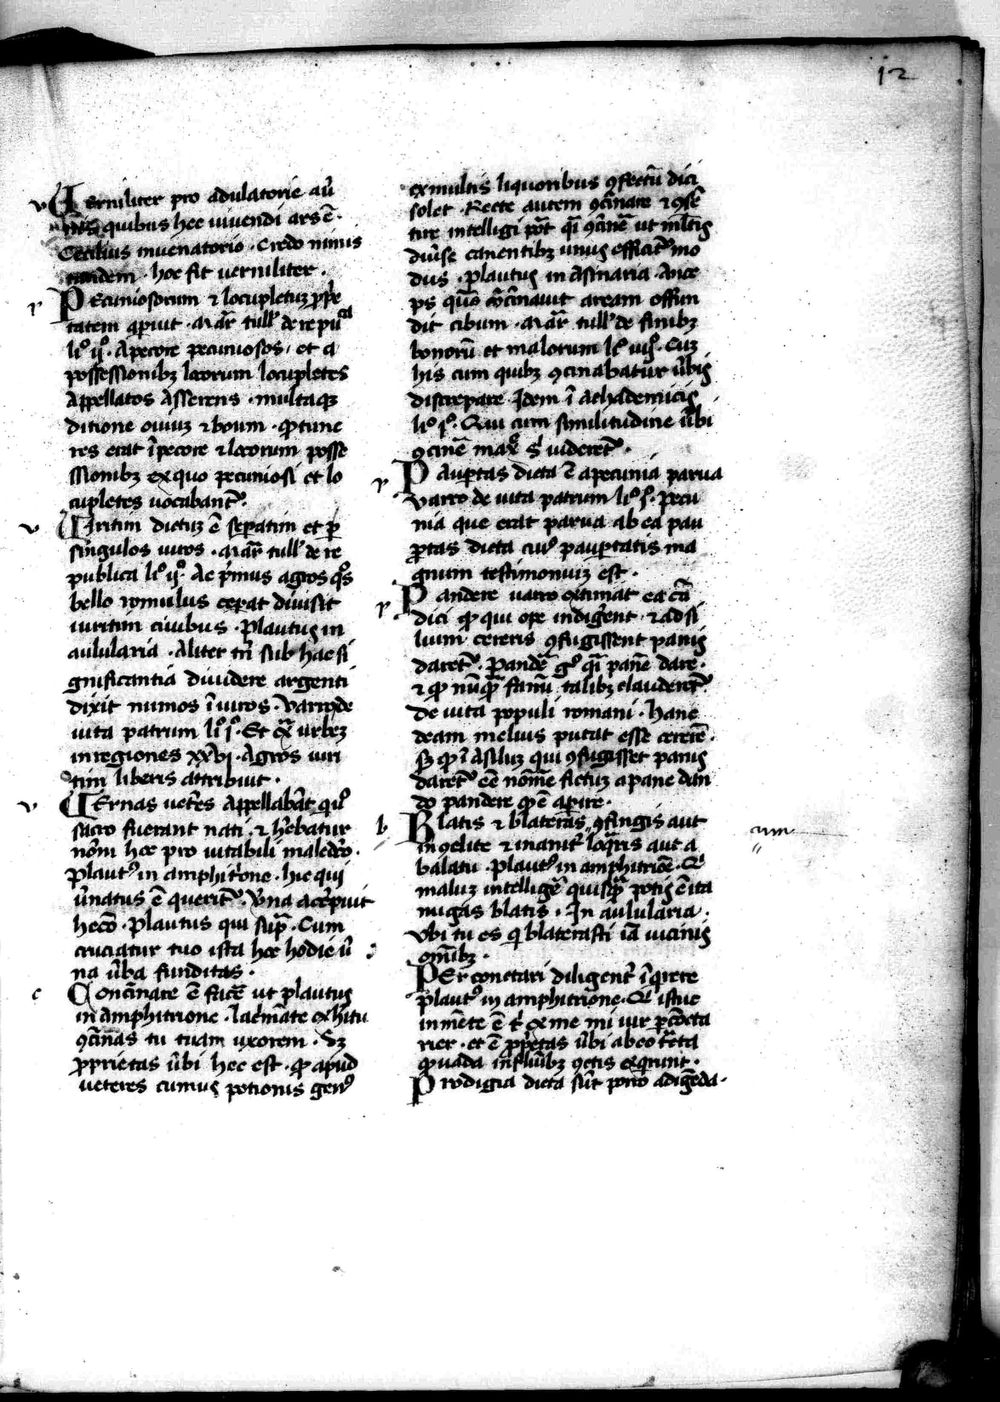 12
v Verniliter pro adulatorie aū
quibus hec viuendi ars ē.
Cecilius in venatorio. Credo nimis
tandem. hoc fit verniliter.
p PEcuniosorum ⁊ locupletuȝ ꝓpͥe
tatem aꝑuit. Mar̄. tull' de re puᶜᵃ
li° ij°. A pecore pecuniosos, et a
possessionibȝ locorum locupletes
Appellatos Asserens. multaqȝ
ditione ouiuȝ ⁊ boum. ꝙ tunc
res erat ī pecore ⁊ locorum posse
ssionibȝ ex quo pecuniosi et lo
cupletes vocabant᷑.
v VIritim dictuȝ ē seꝑatim et ꝑ
singulos viros. Mar̄ tull' de re
publica li° ij°. Ac pͥmus agros q̄s
bello romulus ceperat diuisit
iuritim ciuibus. Plautꝰ in
aulularia. Aliter tn̄ sub hac si
gnificantia diuidere argenti
dixit numos ī viros. Varro de
vita patrum li° j°. Et ex̄ vrbeȝ
in regiones xxvj. Agros viri
tim liberis attribuit.
v VErnas vet̄es Appellabāt qͥ
sacro fuerant nati. ⁊ h̄ebatur
nōm hoc pro vitabili maledc̄o.
Plautꝰ in amphitrione. hic qui
v̄natus ē querit᷑. v̄na accepiuit
hec̄o. Plautus qui sup̄. Cum
cruciatur tuo ista hec hodie v̄
na v̄ba funditas.
c COncīnare ē facē ut plautꝰ
in amphitrione. lacͥmāte ex hītu
ꝯcīnas tu tuam vxorem. Sȝ
ꝓprietas v̄bi hec est. ꝙ apud
veteres cumus potionis genꝰ
ex multis liquoribus ꝯfectū dici
solet. Recte autem ꝯcīnare ⁊ ꝯsē
tire intelligi pōt q̄i ꝯcinē̄ ut ml̄tis
diu̅se canentibȝ vnus efficit᷑ mo
dus. Plautus in asinaria. Ance
ps quō cōcīnauit aream offun
dit cibum. Mar̄ tull' de finibȝ
bonorū et malorum li° iiij°. Cuȝ
his cum quibȝ ꝯcinabatur v̄bis
discrepare. Idem ī Achademicis
li° j°. Qui cum similitudine v̄bi
ꝯcinē max̄ sͥ videret᷑.
p PAuꝑtas dicta ē a pecunia parua
varro de vita patrum li° j°. Pecu
nia que erat parua ab ea pau
ꝑtas dicta cuiꝰ pauꝑtatis ma
gnum testimoniuȝ est.
p PAndere varro extimat ea cā
dici ꝙ qui ope indiget ⁊ ad si
lium cereris ꝯfugissent panis
daret᷑. Pandē̄ gͦ q̄i panē dare.
⁊ ꝙ nūq̄ fanū talibȝ clauderet᷑.
De vita populi romani. hanc
deam melius putat esse cererē.
sȝ ꝙ ī asiluȝ qui ꝯfugisset panis
daret᷑ eē nōmē fictuȝ a pane dan
do pandere ꝙ ē aꝑire.
b BLatis ⁊ blateras ꝯfingis aut
incelite ⁊ inanit᷑ loq̄ris aut a
balatu. Plautꝰ in amphitriōe. Qͥ
maluȝ intelligē̄ quisq̄ potꝰ ē ita
nugas blatis. In aulularia.
Vbi tu es q̄ blaterasti iā vicinis
om̄ibȝ.
PErconctari diligent᷑ īq̄rere
plautꝰ in amphitrione. Qͥ istuc
in mēte ē tͥ ex me mi vir ꝑcōcta
rier. et ē ꝓp̄etas v̄bi ab eo tͣcta
quada in flūibȝ ꝯctis exq̄runt.
Prodigia dicta sūt porro adigēda.